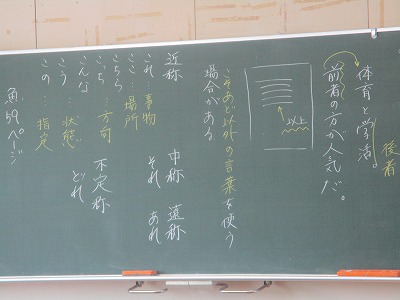 後者
体育と学活。
前者の方が人気だ。
以上
こそあど以外の言葉を使う
場合がある
近称 中称 遠称 不定称
これ 事物 それ あれ どれ
ここ…場所
こちら
こっち…方向
こんな
こう…状態
この…指定
59ページ